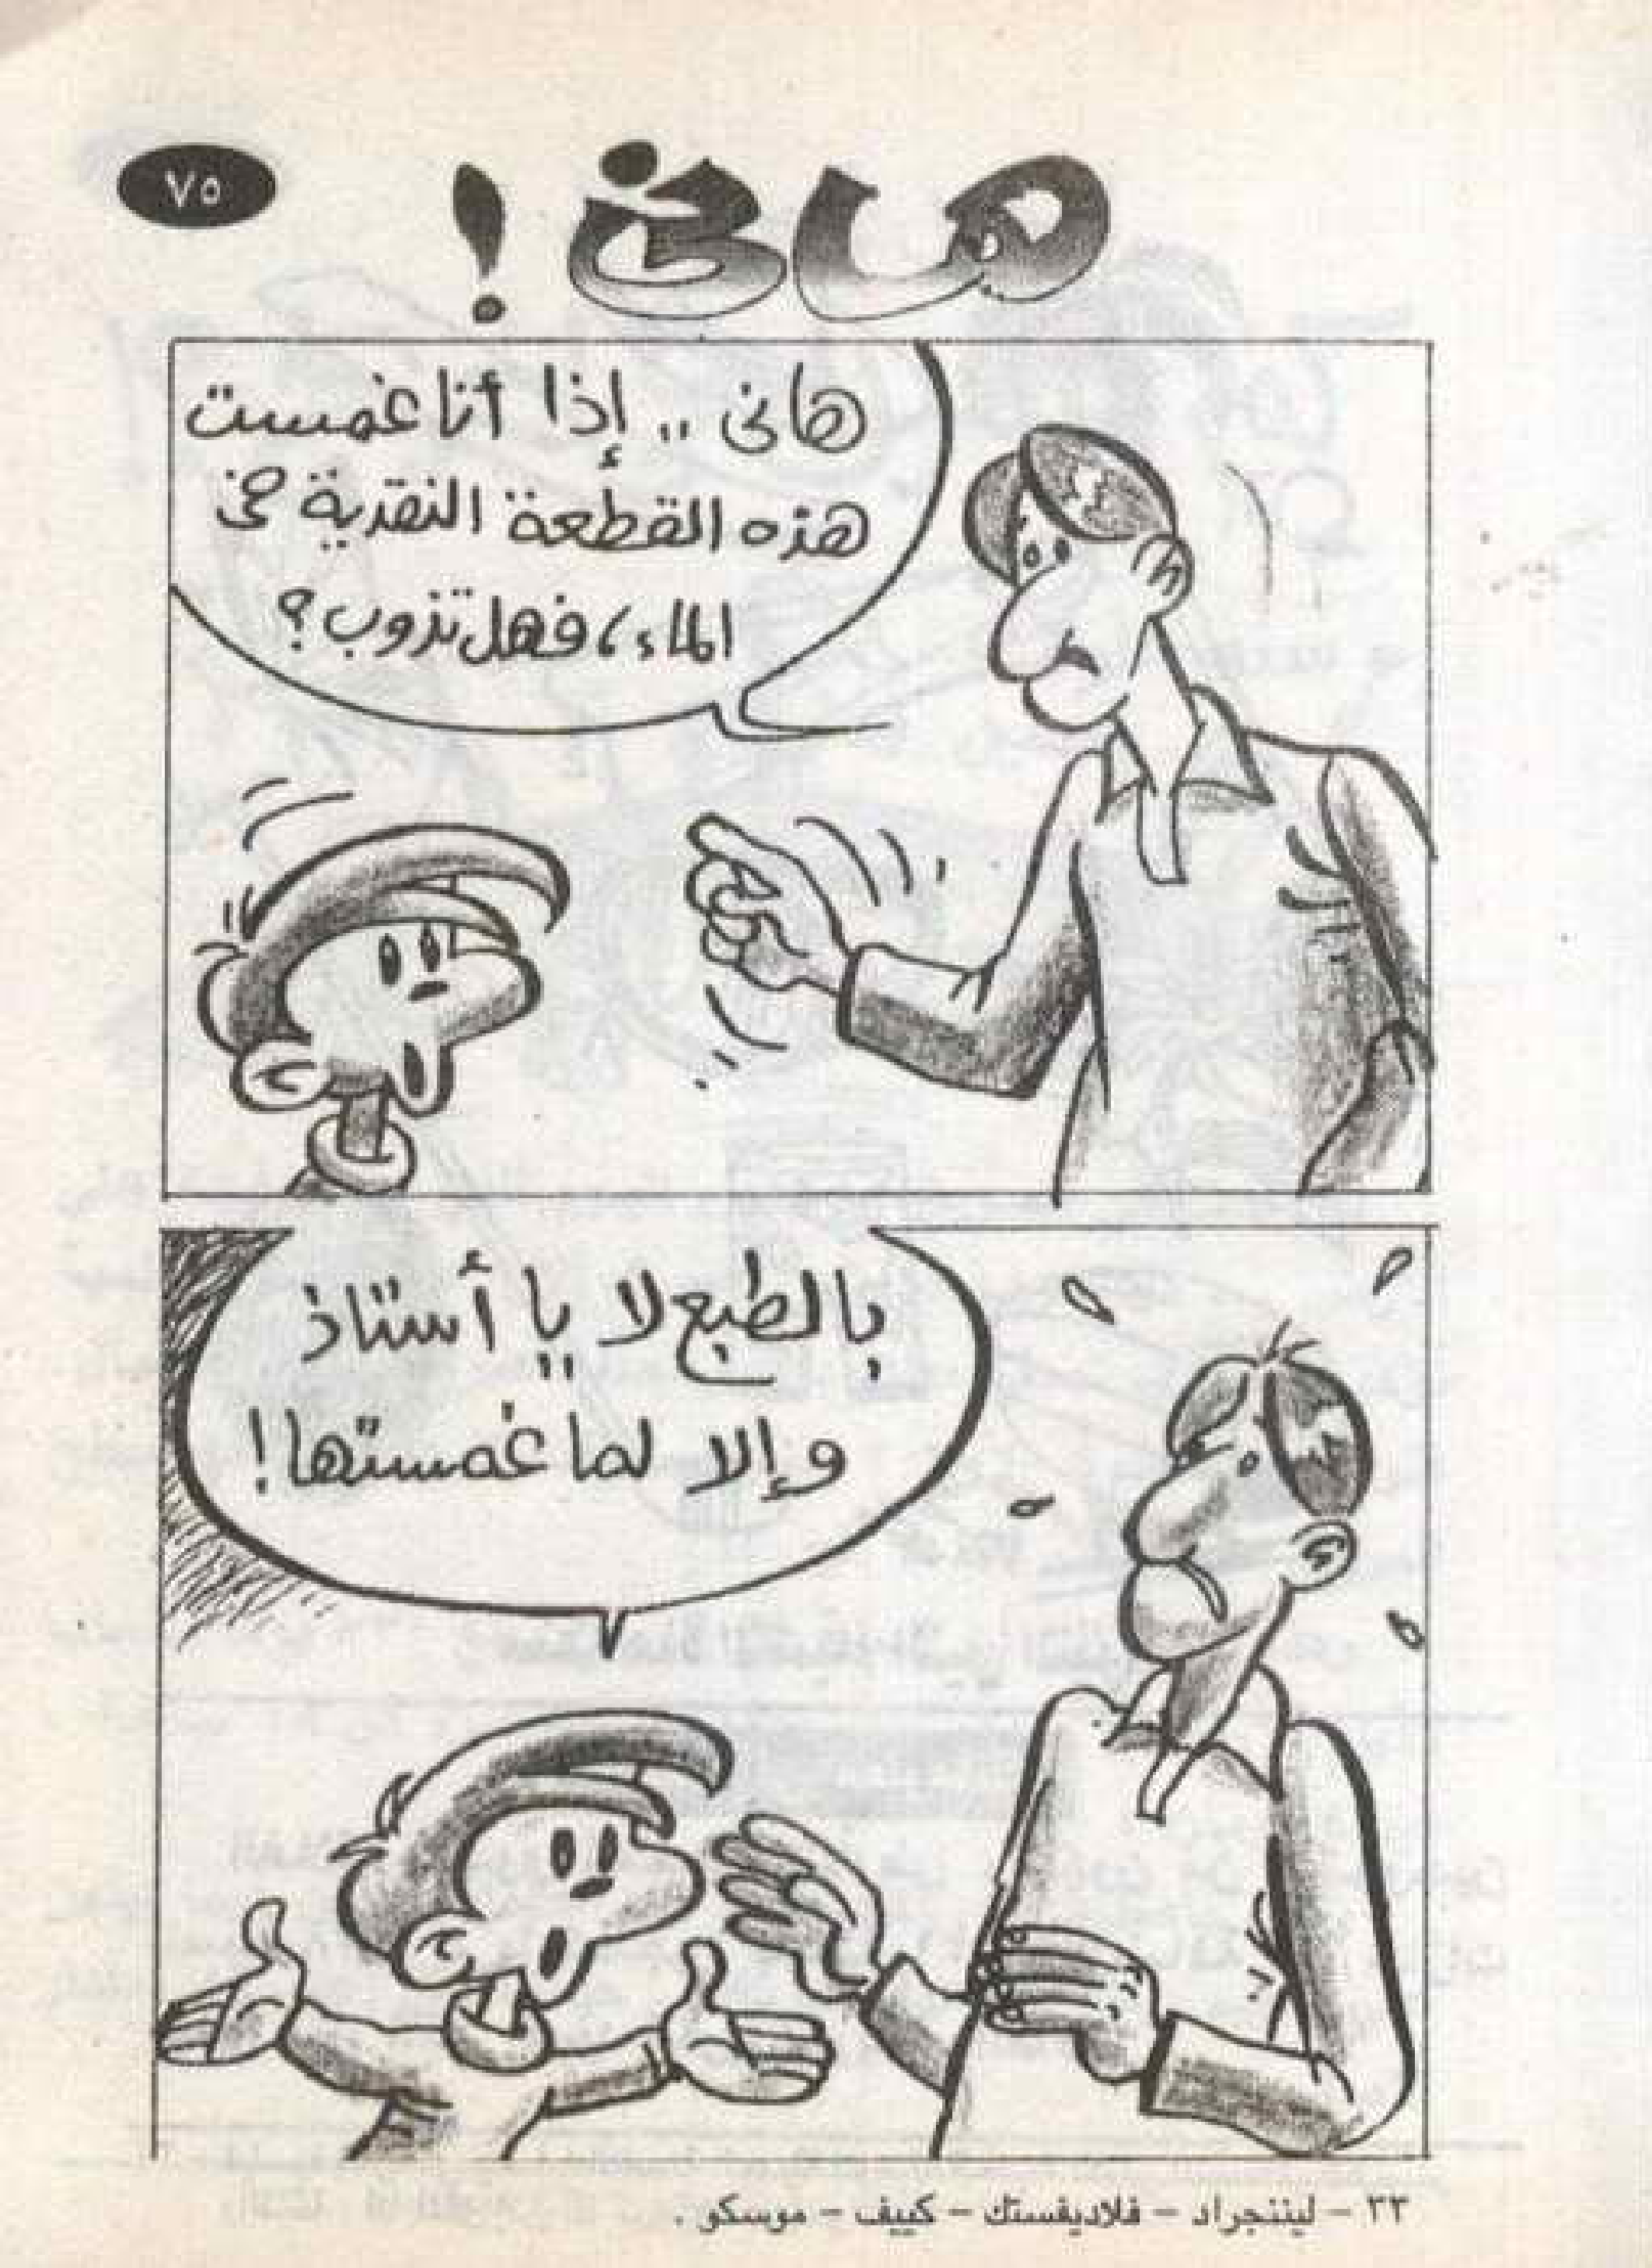 ٧٥
هانى !
هانى .. إذا أنا غمست
هذه القطعة النقدية فى
الماء ، فهل تذوب ؟
بالطبع لا يا أستاذ
وإلا لما غمستها !
٣٣ - ليننجراد - فلاديفستك - كييف - موسكو .